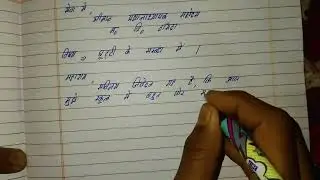 सेवा में,
श्रीमान प्रधानाध्यापक महोदय
विषय - छुट्टी के सम्बन्ध में ।
महाशय,
सविनय निवेदन यह है, कि आज
मुझे स्कूल में बहुत जोर